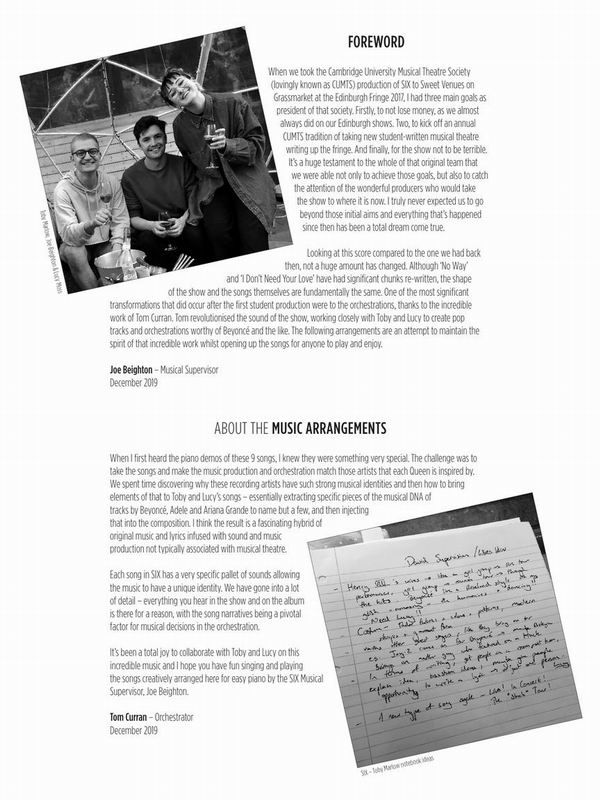 FOREWORD
When we took the Cambridge University Musical Theatre Society
(lovingly known as CUMTS) production of SIX to Sweet Venues on
Grassmarket at the Edinburgh Fringe 2017, I had three main goals as
president of that society. Firstly, to not lose money, as we almost
always did on our Edinburgh shows. Two, to kick off an annual
CUMTS tradition of taking new student-written musical theatre
writing up the fringe. And finally, for the show not to be terrible.
It's a huge testament to the whole of that original team that
we were able not only to achieve those goals, but also to catch
the attention of the wonderful producers who would take
the show to where it is now. I truly never expected us to go
beyond those initial aims and everything that's happened
since then has been a total dream come true.
Toby Marlow, Joe Beighton & Lucy Moss
Looking at this score compared to the one we had back
then, not a huge amount has changed. Although 'No Way'
and 'I Don't Need Your Love' have had significant chunks re-written, the shape
of the show and the songs themselves are fundamentally the same. One of the most significant
transformations that did occur after the first student production were to the orchestrations, thanks to the incredible
work of Tom Curran. Tom revolutionised the sound of the show, working closely with Toby and Lucy to create pop
tracks and orchestrations worthy of Beyoncé and the like. The following arrangements are an attempt to maintain the
spirit of that incredible work whilst opening up the songs for anyone to play and enjoy.
Joe Beighton – Musical Supervisor
December 2019
ABOUT THE MUSIC ARRANGEMENTS
When I first heard the piano demos of these 9 songs, I knew they were something very special. The challenge was to
take the songs and make the music production and orchestration match those artists that each Queen is inspired by.
We spent time discovering why these recording artists have such strong musical identities and then how to bring
elements of that to Toby and Lucy's songs – essentially extracting specific pieces of the musical DNA of
tracks by Beyoncé, Adele and Ariana Grande to name but a few, and then injecting
that into the composition. I think the result is a fascinating hybrid of
original music and lyrics infused with sound and music
production not typically associated with musical theatre.
Each song in SIX has a very specific pallet of sounds allowing
the music to have a unique identity. We have gone into a lot
of detail – everything you hear in the show and on the album
is there for a reason, with the song narratives being a pivotal
factor for musical decisions in the orchestration.
It's been a total joy to collaborate with Toby and Lucy on this
incredible music and I hope you have fun singing and playing
the songs creatively arranged here for easy piano by the SIX Musical
Supervisor, Joe Beighton.
Tom Curran – Orchestrator
December 2019
Henry VIII's wives → like a girl group
Need Lucy!!
explain idea,
opportunity to write a lyric
A new type of song cycle – LIVE! In Concert!
SIX – Toby Marlow notebook ideas